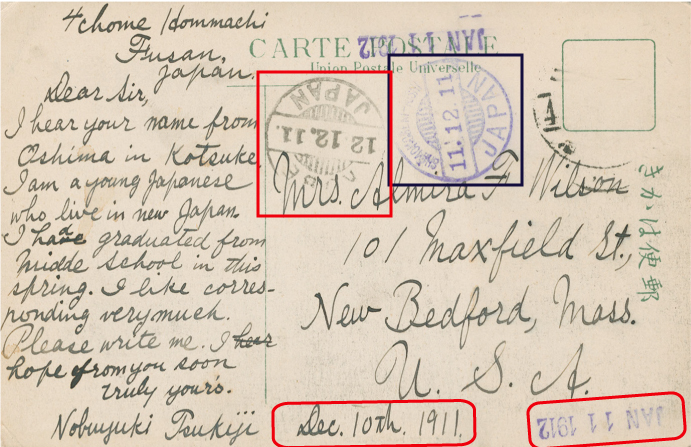 4 chome Hommachi
Fusan,
Japan.
CARTE POSTALE
JAN 11 1912
Union Postale Universelle
Dear Sir,
I hear your name from
Oshima in Kotsuke.
I am a young Japanese
who live in new Japan
I have graduated from
Midde school in this
spring. I like corres-
ponding very much.
Please write me. I hear
hope from you soon
truly yours.
Nobuyuki Tsukiji
JAPAN
12.12.11.
11.12.11
JAPAN
Mrs. Almira F. Wilson
101 Maxfield St.,
New Bedford, Mass.
U. S. A.
きかは便郵
Dec. 10th. 1911.
JAN 11 1912